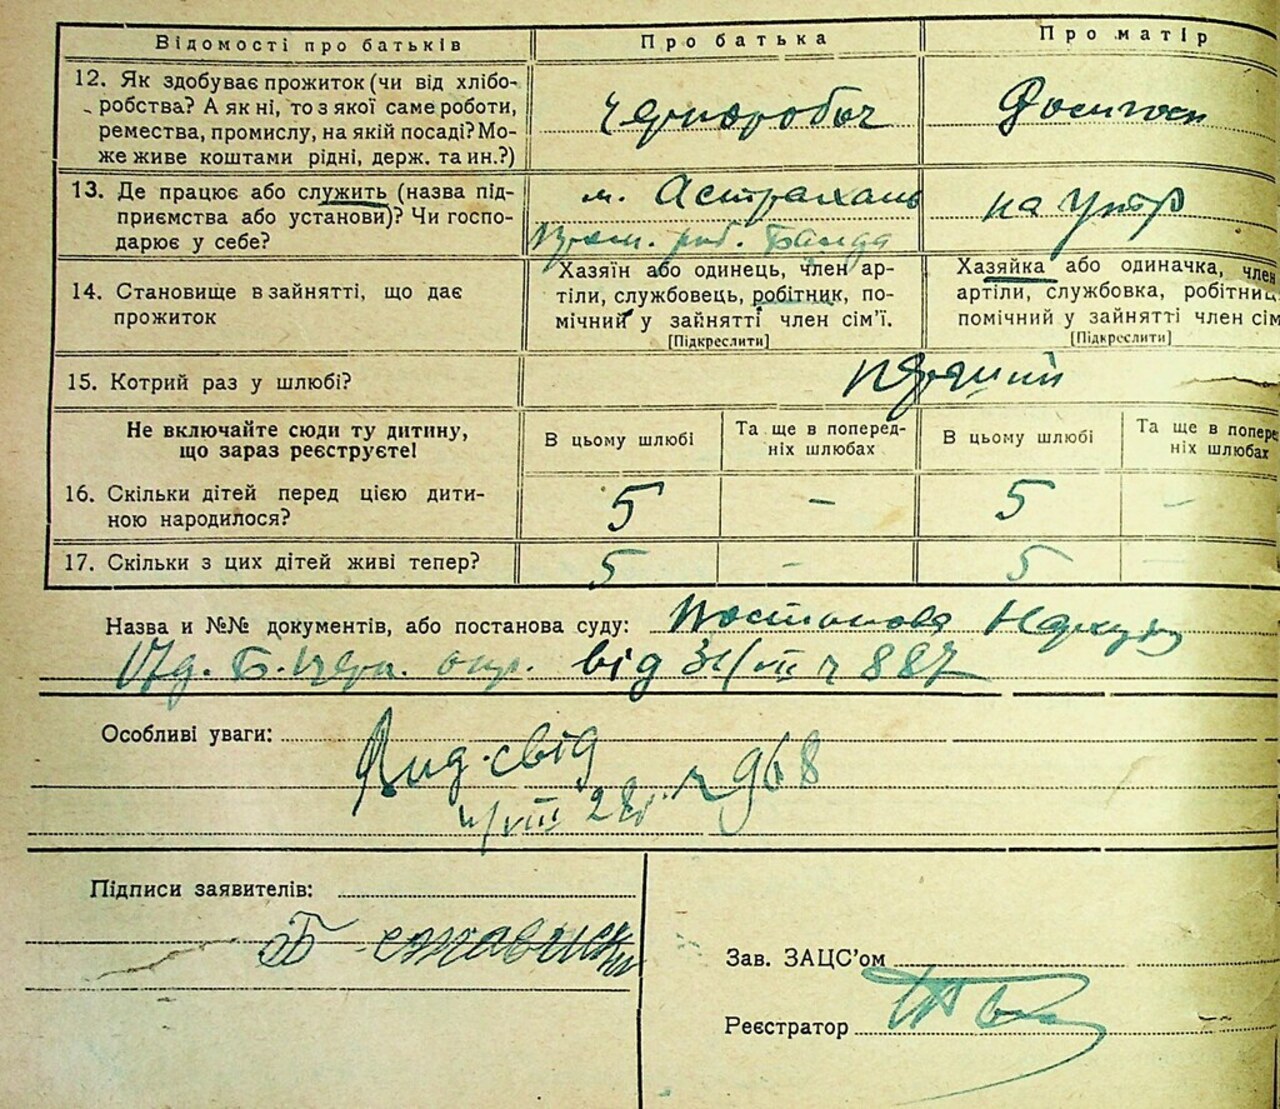 Відомості про батьків
Про батька
Про матір
12. Як здобуває прожиток (чи від хлібо-
робства? А як ні, то з якої саме роботи,
ремества, промислу, на якій посаді? Мо-
же живе коштами рідні, держ. та ин.?)
Чернороботч
Домгосп
13. Де працює або служить (назва під-
приємства або установи)? Чи госпо-
дарює у себе?
м. Астрахань
на утр
14. Становище в зайнятті, що дає
прожиток
Хазяїн або одинець, член ар-
тілі, службовець, робітник, по-
мічний у зайнятті член сім'ї.
[Підкреслити]
Хазяйка або одиначка, член
артілі, службовка, робітниц
помічний у зайнятті член сім
[Підкреслити]
15. Котрий раз у шлюбі?
перший
Не включайте сюди ту дитину,
що зараз реєструєте!
В цьому шлюбі
Та ще в поперед-
ніх шлюбах
В цьому шлюбі
Та ще в попере
ніх шлюбах
16. Скільки дітей перед цією дити-
ною народилося?
5
-
5
-
17. Скільки з цих дітей живі тепер?
5
-
5
-
Назва и №№ документів, або постанова суду: Постанова
від ч 887
Особливі уваги:
Вид. свід
VIII 28р. ч 968
Підписи заявителів:
Зав. ЗАЦС'ом
Реєстратор